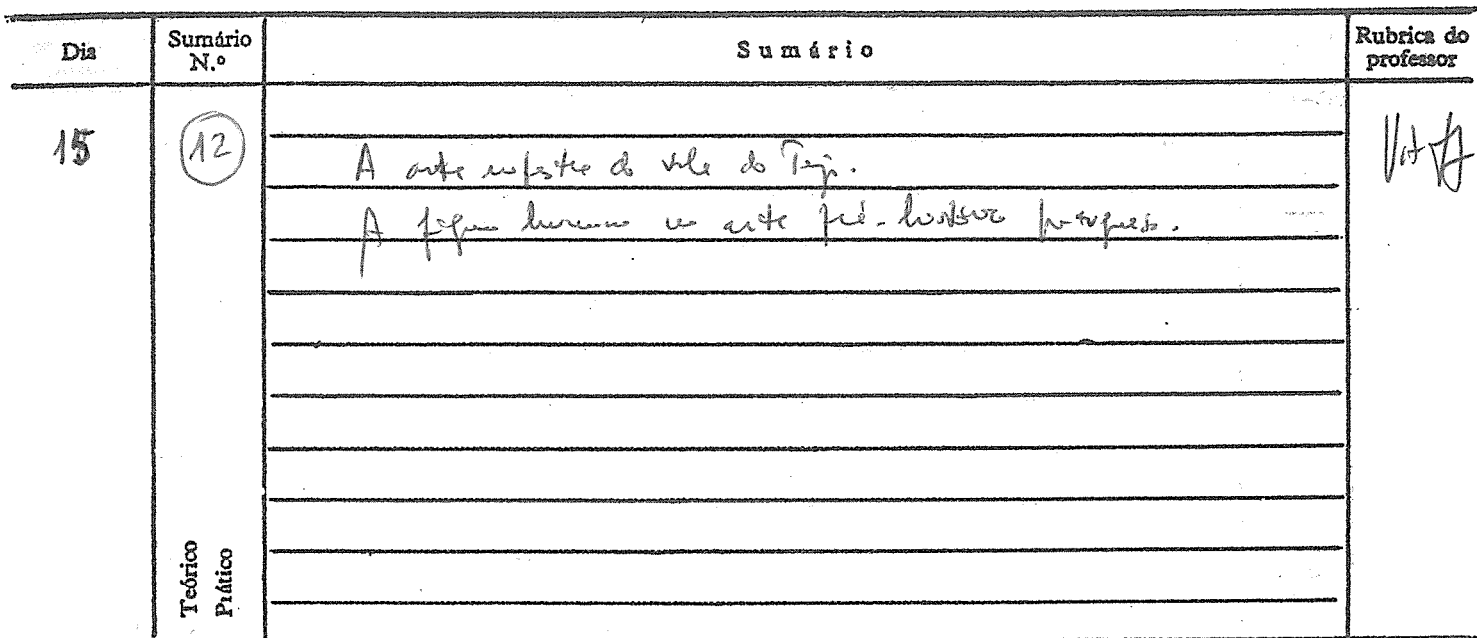 Dia
Sumário N.º
Sumário
Rubrica do professor
15
12
A arte rupestre do vale do Tejo.
A figura humana na arte pré-histórica portuguesa.
Teórico
Prático